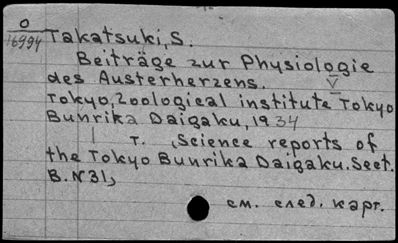 O
16994
Takatsuki, S.
Beiträge zur Physiologie
des Austerherzens. V
Tokyo, Zoological institute Tokyo
Bunrika Daigaku, 1934
T. (Science reports of
the Tokyo Bunrika Daigaku. Sect.
B. N31)
см. след. карт.